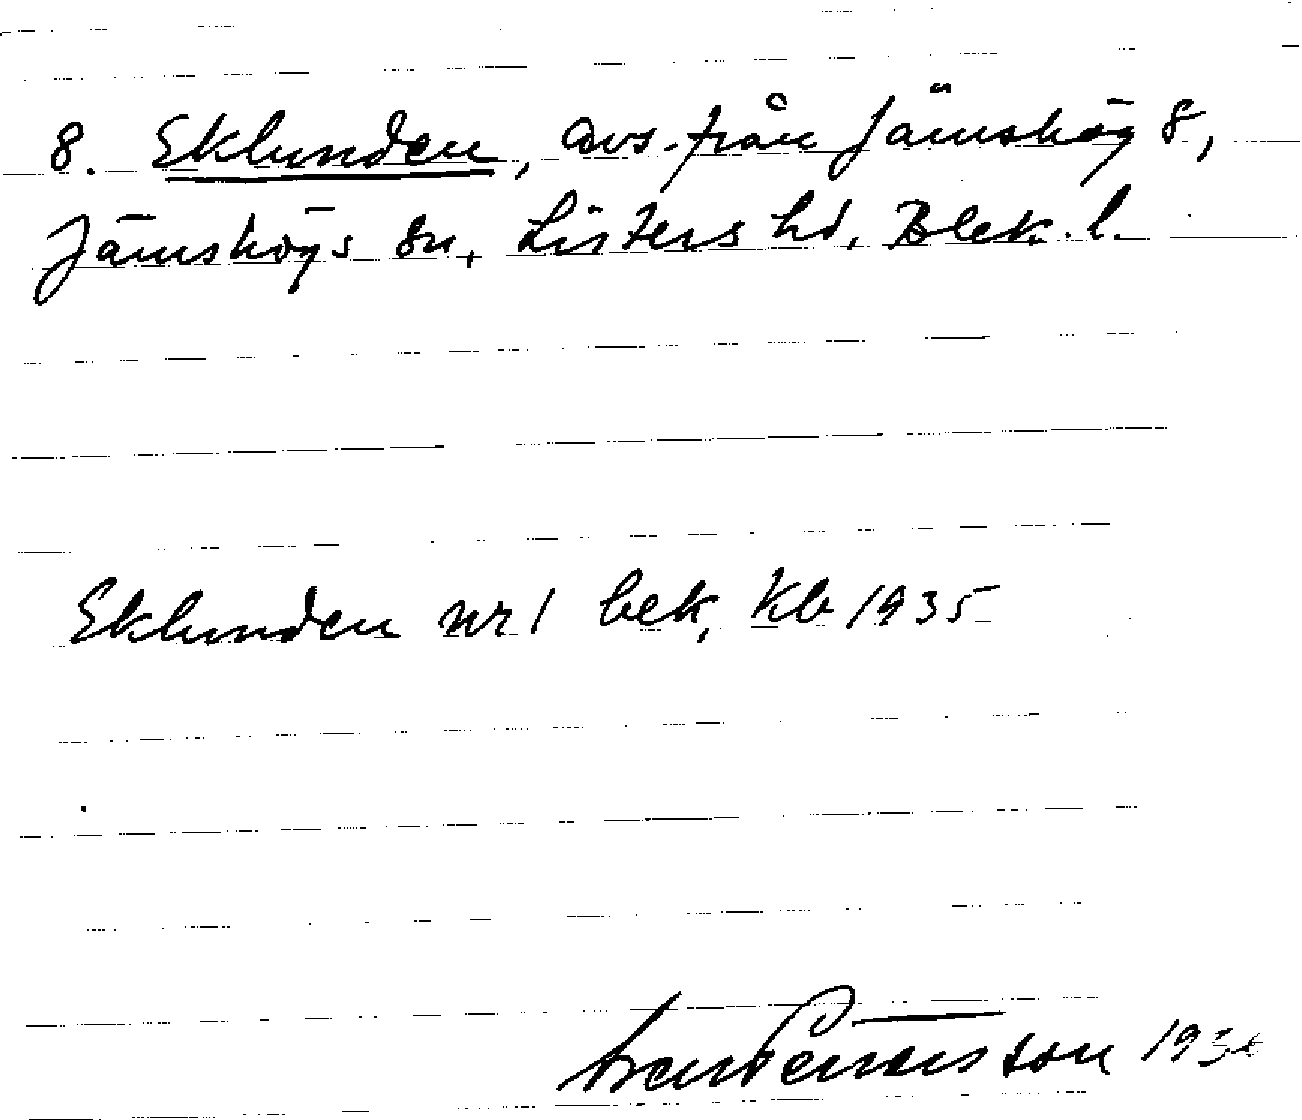 8. Eklunden, avs. från Jämshög 8,
Jämshögs sn, Listers hd, Blek. l.
Eklunden nr 1 bek, Kb 1935